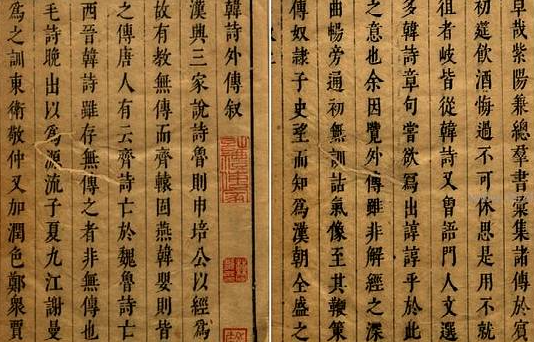 卓哉紫陽兼總羣書彙集諸傳於賓
初筵飲酒悔過不可休思是用不就
徂者岐皆從韓詩又曽語門人文選
多韓詩章句嘗欲為出諄諄乎於此
之意也余因覽外傳雖非解經之深
曲暢旁通初無訓詁氣像至其鞭策
傳奴隸子史望而知為漢朝全盛之
韓詩外傳叙
漢興三家說詩魯則申培公以經為
故有教無傳而齊轅固燕韓嬰則皆
之傳唐人有云齊詩亡於魏魯詩亡
西晉韓詩雖存無傳之者非無傳也
毛詩晚出以為源流子夏九江謝曼
為之訓東衛敬仲又加潤色鄭衆賈